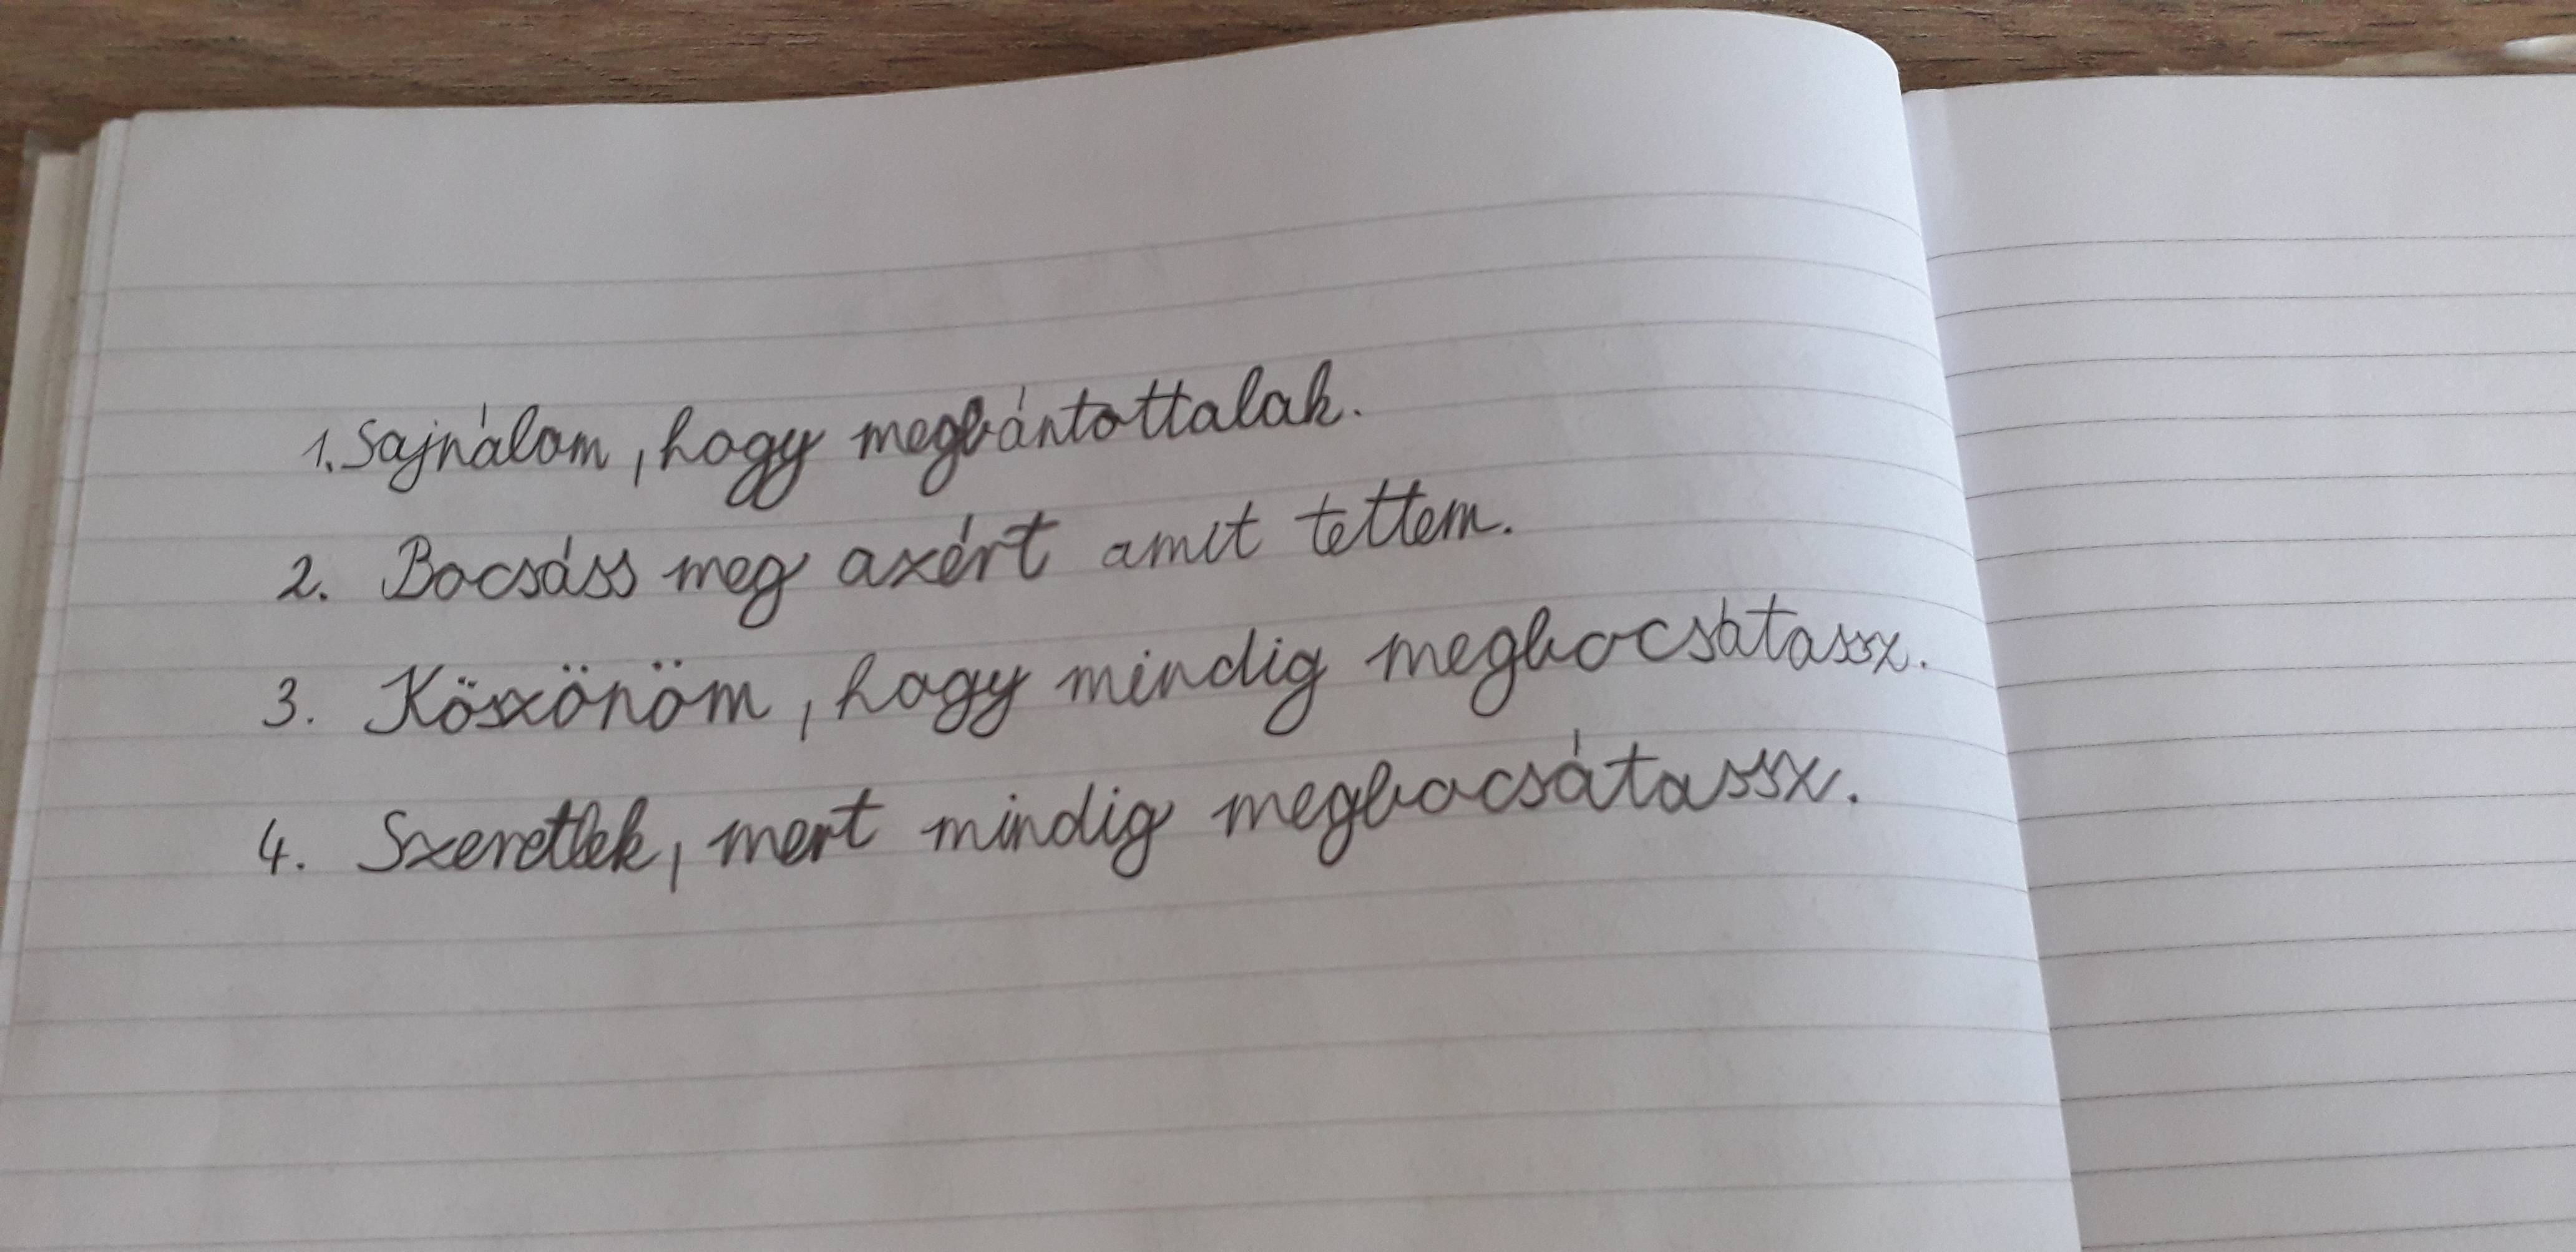 1. Sajnálom, hogy megbántottalak.
2. Bocsáss meg azért amit tettem.
3. Köszönöm, hogy mindig megbocsátassz.
4. Szeretlek, mert mindig megbocsátassz.